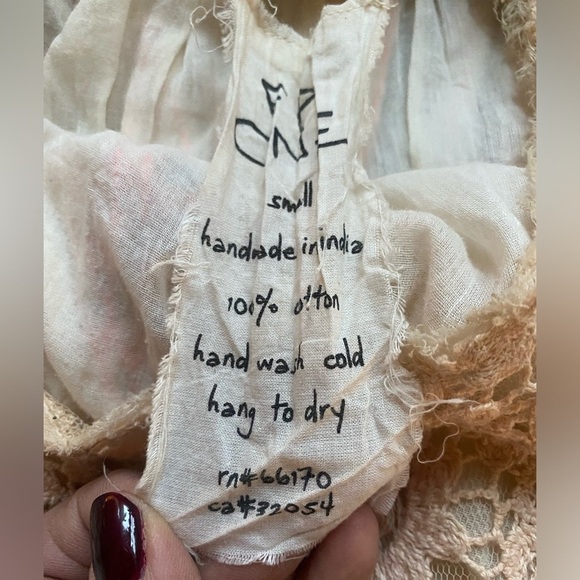 ONE
small
handmade in india
100% cotton
hand wash cold
hang to dry
rn#66170
ca#32054